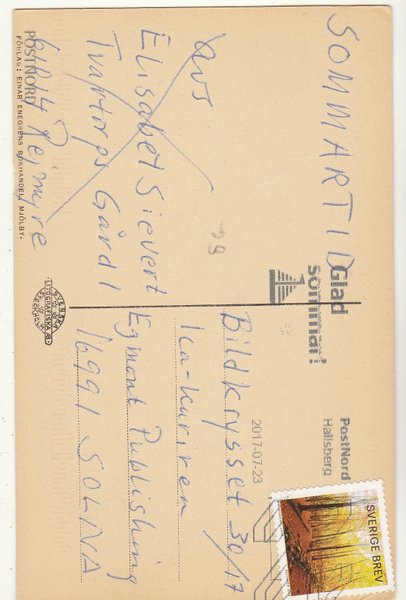 SOMMARTID
Avs
Elisabet Sievert
Tvartorps Gård 1
61014 Rejmyre
Glad
sommar!
PostNord
Hallsberg
2017-07-23
SVERIGE BREV
Bildkrysset 30/17
Ica-kuriren
Egmont Publishing
16991 SOLNA
99
POSTNORD
FÖRLAG: EINAR ENEGRENS BOKHANDEL, MJÖLBY.